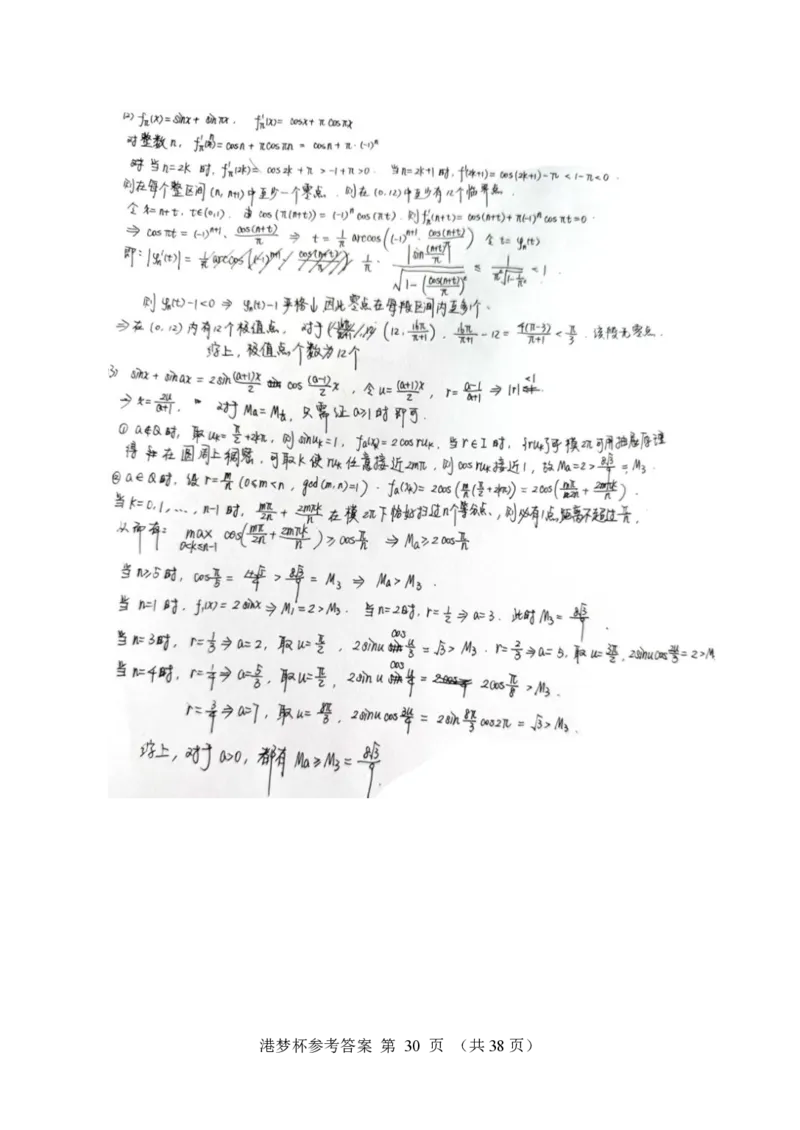 (2) fπ(x)=sinx+sinπx, f'π(x)=cosx+πcosπx
对整数n, f'π(n)=cosn+πcosπn=cosn+π·(-1)ⁿ
当n=2k时, f'π(2k)=cos2k+π>-1+π>0. 当n=2k+1时, f'(2k+1)=cos(2k+1)-π<1-π<0.
则在每个整区间(n,n+1)中至少一个零点. 则在(0,12)中至少有12个临界点.
令x=n+t, t∈(0,1). 由cos(π(n+t))=(-1)ⁿcos(πt). 则f'π(n+t)=cos(n+t)+π(-1)ⁿcosπt=0.
⇒ cosπt=(-1)ⁿ⁺¹·cos(n+t)/π ⇒ t=1/π arccos((-1)ⁿ⁺¹·cos(n+t)/π) 令t=φn(t)
即: |φn'(t)|= 1/π · |sin(n+t)/π| / √(1-(cos(n+t)/π)²) ≤ 1/(π²√(1-1/π²)) <1.
则φn(t)-1<0 ⇒ φn(t)-t严格↓因此零点在每段区间内至多1个.
⇒在(0,12)内有12个极值点, 对于(12, 16π/(π+1)). 16π/(π+1)-12=4(π-3)/(π+1)<π/3. 该段无零点.
综上, 极值点个数为12个
3) sinx+sinax=2sin(a+1)x/2 cos(a-1)x/2, 令u=(a+1)x/2, r=(a-1)/(a+1) ⇒|r|<1
⇒x=2u/(a+1). 对于Ma=M1/a, 只需证a≥1时即可.
①a∉Q时, 取uk=π/2+2kπ, 则sinuk=1, fa(xk)=2cosruk. 当r∈I时, {ruk}于模2π可用抽屉原理
得在圆周上稠密, 可取k使ruk任意接近2mπ, 则cosruk接近1, 故Ma=2>8√3/9=M3.
②a∈Q时, 级r=m/n(0≤m<n, gcd(m,n)=1). fa(xk)=2cos(m/n(π/2+2kπ))=2cos(mπ/2n+2mπk/n).
当k=0,1,...,n-1时, mπ/2n+2mπk/n在模2π下恰好扫过n个等分点, 则必有1点距离不超过π/n,
从而有: max 0≤k≤n-1 cos(mπ/2n+2mπk/n)≥cosπ/n ⇒Ma≥2cosπ/n
当n≥5时, cosπ/5= >8√3/9=M3 ⇒ Ma>M3.
当n=1时, f1(x)=2sinx⇒M1=2>M3. 当n=2时, r=1/2⇒a=3. 此时M3=8√3/9.
当n=3时, r=1/3⇒a=2, 取u=π/2, 2sinu cos u/3=√3>M3. r=2/3⇒a=5, 取u=3π/2, 2sinucos2u/3=2>M
当n=4时, r=1/4⇒a=5/3, 取u=π/2, 2sinu cos u/4=2cosπ/8>M3.
r=3/4⇒a=7, 取u=8π/3, 2sinucos3u/4=2sin8π/3cos2π=√3>M3.
综上, 对于a>0, 都有Ma≥M3=8√3/9.
港梦杯参考答案 第 30 页 （共38页）